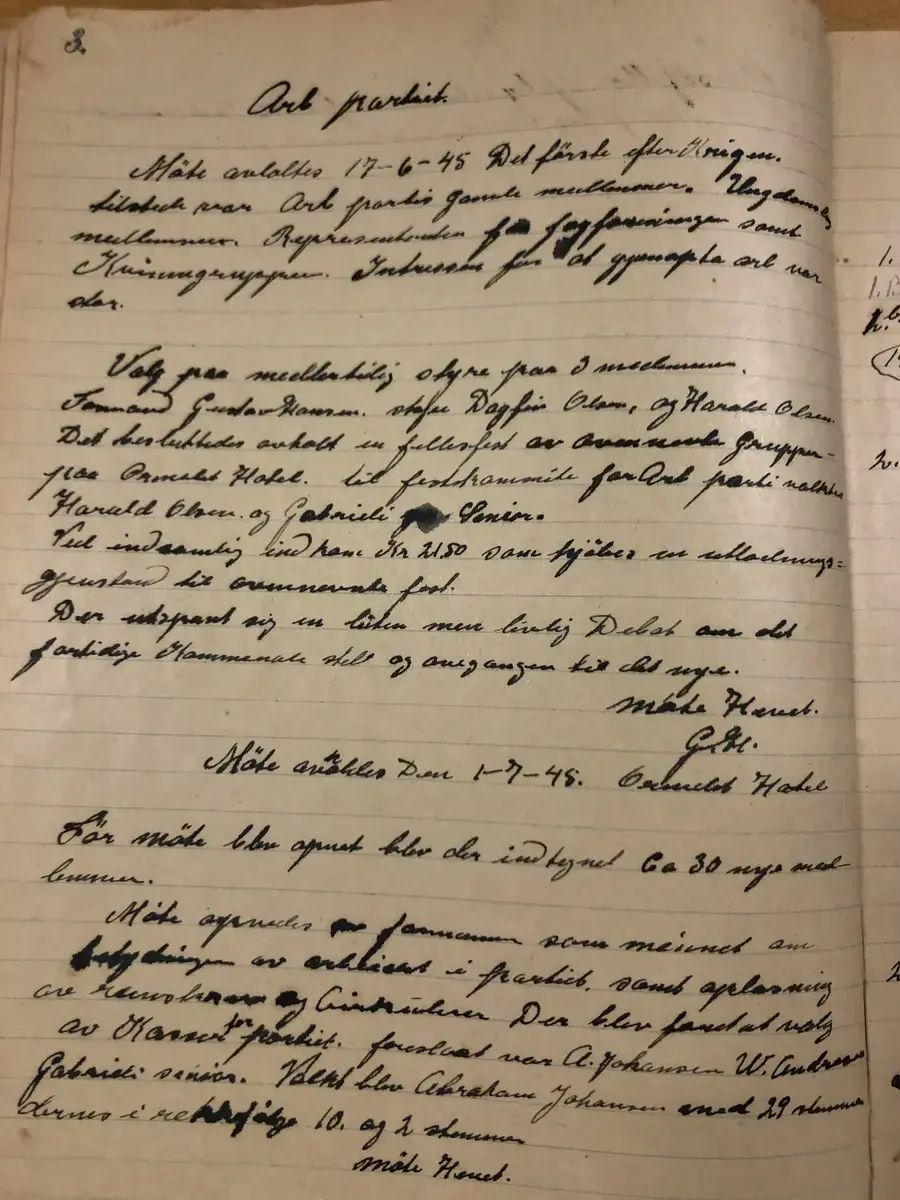 3.
Arb partiet.
Möte avholtes 17-6-45 Det förste efter Krigen.
tilstede var Arb partis gamle medlemmer. Ungdoms
medlemmer. Representanter fagforeningen samt
Kvinnegruppen. Intressen for at gjenopta arb var
stor.
Valg paa medlertidig styre paa 3 medemmer.
Formand Gustav Hansen. Dagfin Olsen, og Harald Olsen.
Det besluttedes avholt en fellesfest av ovennevte Grupper-
paa Hotel. til festkommite for Arb parti valktes
Harald Olsen. og Gabrieli Senior.
Ved indsamlig indkom Kr 21.50 som kjöbes en utlodnings=
gjenstand til ovennevnte fest.
Der utspant sig en liten men livlig Debat om det
fortidige Kommenale stel og overgangen til det nye.
möte Hevet.
G.H.
Möte avholtes Den 1-7-45. Hotel
För möte blev apnet blev der indtegnet Ca 30 nye med
lemmer.
Möte apnedes av formannen som meinet om
betydningen av arbeidet i partiet. samt oplasning
av og Cirkulerer Der blev foretat valg
av Kasser for partiet. foreslaat var A. Johansen W. Andrese
Gabrieli senior. Valkt blev Abraham Johansen med 29 stemmer
dernes i rekkefölge 10. og 2 stemmer
möte Hevet.
1.
2.
2